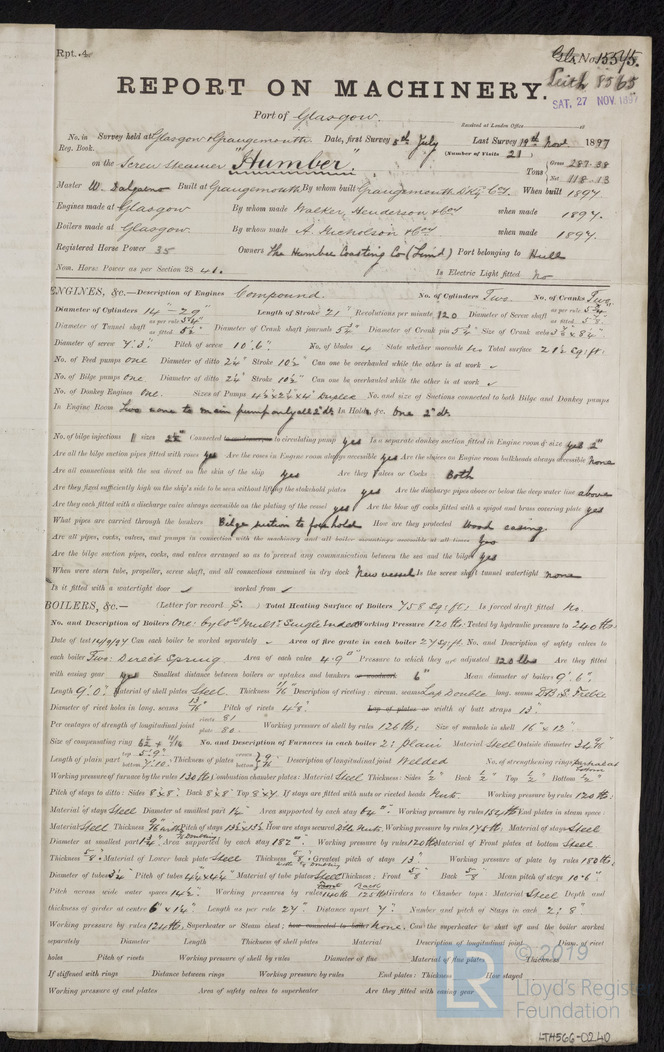 Rpt. 4.
Gls No. 15575.
Leith 8565
REPORT ON MACHINERY.
SAT. 27 NOV. 1897
Port of Glasgow.
Received at London Office
No. in Survey held at Glasgow & Grangemouth Date, first Survey 8th July Last Survey 19th Nov 1897
Reg. Book.
(Number of Visits 21)
on the Screw Steamer "Humber"
Tons Gross 287.38 Net 118.13
Master W. Built at Grangemouth By whom built Grangemouth Dkyd Coy. When built 1897
Engines made at Glasgow By whom made Walker, Henderson & Coy when made 1897.
Boilers made at Glasgow By whom made A. Nicholson & Coy when made 1897.
Registered Horse Power 35 Owners The Humber Coasting Co (Limd) Port belonging to Hull
Nom. Horse Power as per Section 28 41. Is Electric Light fitted No
ENGINES, &c.—Description of Engines Compound. No. of Cylinders Two. No. of Cranks Two.
Diameter of Cylinders 14"-29" Length of Stroke 21" Revolutions per minute 120 Diameter of Screw shaft as per rule as fitted
Diameter of Tunnel shaft as per rule as fitted Diameter of Crank shaft journals 5½" Diameter of Crank pin 5½" Size of Crank webs
Diameter of screw 7'.3" Pitch of screw 10'.6" No. of blades 4 State whether moveable No Total surface 21½ Sq: ft:
No. of Feed pumps one Diameter of ditto 2¼" Stroke 10½" Can one be overhauled while the other is at work ✓
No. of Bilge pumps One Diameter of ditto 2¼" Stroke 10½" Can one be overhauled while the other is at work ✓
No. of Donkey Engines One. Sizes of Pumps Duplex No. and size of Suctions connected to both Bilge and Donkey pumps
In Engine Room Two one to main pump only all 2" ds. In Holds, &c. One 2" ds.
No. of bilge injections 1 sizes Connected to condenser, or to circulating pump yes Is a separate donkey suction fitted in Engine room & size yes 2"
Are all the bilge suction pipes fitted with roses yes Are the roses in Engine room always accessible yes Are the sluices on Engine room bulkheads always accessible none
Are all connections with the sea direct on the skin of the ship yes Are they Valves or Cocks Both
Are they fixed sufficiently high on the ship's side to be seen without lifting the stokehold plates yes Are the discharge pipes above or below the deep water line above
Are they each fitted with a discharge valve always accessible on the plating of the vessel yes Are the blow off cocks fitted with a spigot and brass covering plate yes
What pipes are carried through the bunkers Bilge suction to fore hold How are they protected Wood casing
Are all pipes, cocks, valves, and pumps in connection with the machinery and all boiler mountings accessible at all times Yes
Are the bilge suction pipes, cocks, and valves arranged so as to prevent any communication between the sea and the bilges yes
When were stern tube, propeller, screw shaft, and all connections examined in dry dock New vessel Is the screw shaft tunnel watertight none
Is it fitted with a watertight door ✓ worked from ✓
BOILERS, &c.— (Letter for record S.) Total Heating Surface of Boilers 758 Sq: ft: Is forced draft fitted No.
No. and Description of Boilers One: Cylol Multr Single Ended Working Pressure 120 lbs: Tested by hydraulic pressure to 240 lbs:
Date of test 14/9/97 Can each boiler be worked separately ✓ Area of fire grate in each boiler 27 sq. ft. No. and Description of safety valves to
each boiler Two: Direct Spring. Area of each valve 4.9 □" Pressure to which they are adjusted 120 lbs Are they fitted
with easing gear yes Smallest distance between boilers or uptakes and bunkers or woodwork 6" Mean diameter of boilers 9'. 6".
Length 9'.0". Material of shell plates Steel. Thickness Description of riveting: circum. seams Lap Double long. seams D.B.S. Treble
Diameter of rivet holes in long. seams 13/16" Pitch of rivets Lap of plates or width of butt straps 13"
Per centages of strength of longitudinal joint rivets 81 plate 80. Working pressure of shell by rules 126 lbs: Size of manhole in shell 16" x 12"
Size of compensating ring No. and Description of Furnaces in each boiler 2: Plain Material Steel Outside diameter
Length of plain part top 5'.9" bottom 7'.10" Thickness of plates Description of longitudinal joint Welded No. of strengthening rings
Working pressure of furnace by the rules 130 lbs: Combustion chamber plates: Material Steel Thickness: Sides ½" Back ½" Top ½" Bottom ½"
Pitch of stays to ditto: Sides 8x8". Back 8x8" Top 8x7. If stays are fitted with nuts or riveted heads Nuts. Working pressure by rules 120 lbs:
Material of stays Steel Diameter at smallest part Area supported by each stay 64 □". Working pressure by rules End plates in steam space:
Material Steel Thickness Pitch of stays How are stays secured Dble Nuts. Working pressure by rules 145 lb: Material of stays Steel
Diameter at smallest part Area supported by each stay 182 □". Working pressure by rules 120 lbs Material of Front plates at bottom Steel
Thickness 5/8". Material of Lower back plate Steel Thickness 5/8" Greatest pitch of stays 13" Working pressure of plate by rules 180 lbs:
Diameter of tubes 3¼" Pitch of tubes Material of tube plates Steel Thickness: Front 5/8" Back 5/8 Mean pitch of stays
Pitch across wide water spaces 14½". Working pressures by rules Front 140 lb Back 125 lb Girders to Chamber tops: Material Steel Depth and
thickness of girder at centre 6" x 1¼" Length as per rule 24" Distance apart 7". Number and pitch of Stays in each 2; 8"
Working pressure by rules Superheater or Steam chest; how connected to boiler None. Can the superheater be shut off and the boiler worked
separately Diameter Length Thickness of shell plates Material Description of longitudinal joint Diam. of rivet
holes Pitch of rivets Working pressure of shell by rules Diameter of flue Material of flue plates Thickness
If stiffened with rings Distance between rings Working pressure by rules End plates: Thickness How stayed
Working pressure of end plates Area of safety valves to superheater Are they fitted with easing gear
© 2019
Lloyd's Register
Foundation
LR
LTH566-0240